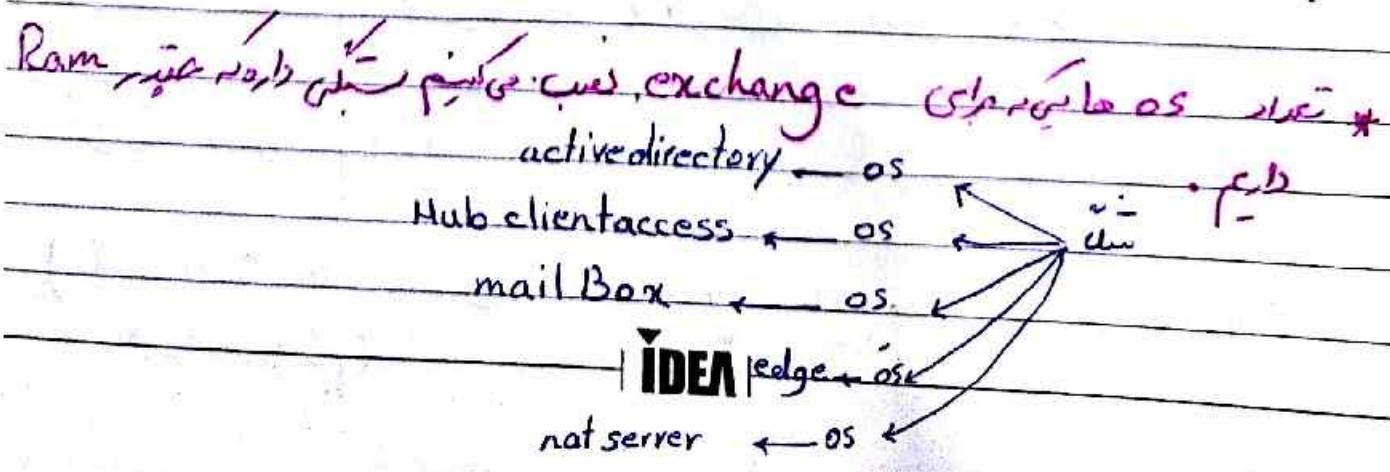 * تعداد os هایی که برای exchange نصب می کنیم بستگی داره که چقدر Ram
داریم.
os ← active directory
شبکه
os ← Hub clientaccess
os. ← mail Box
os ← edge
IDEA
os ← nat server